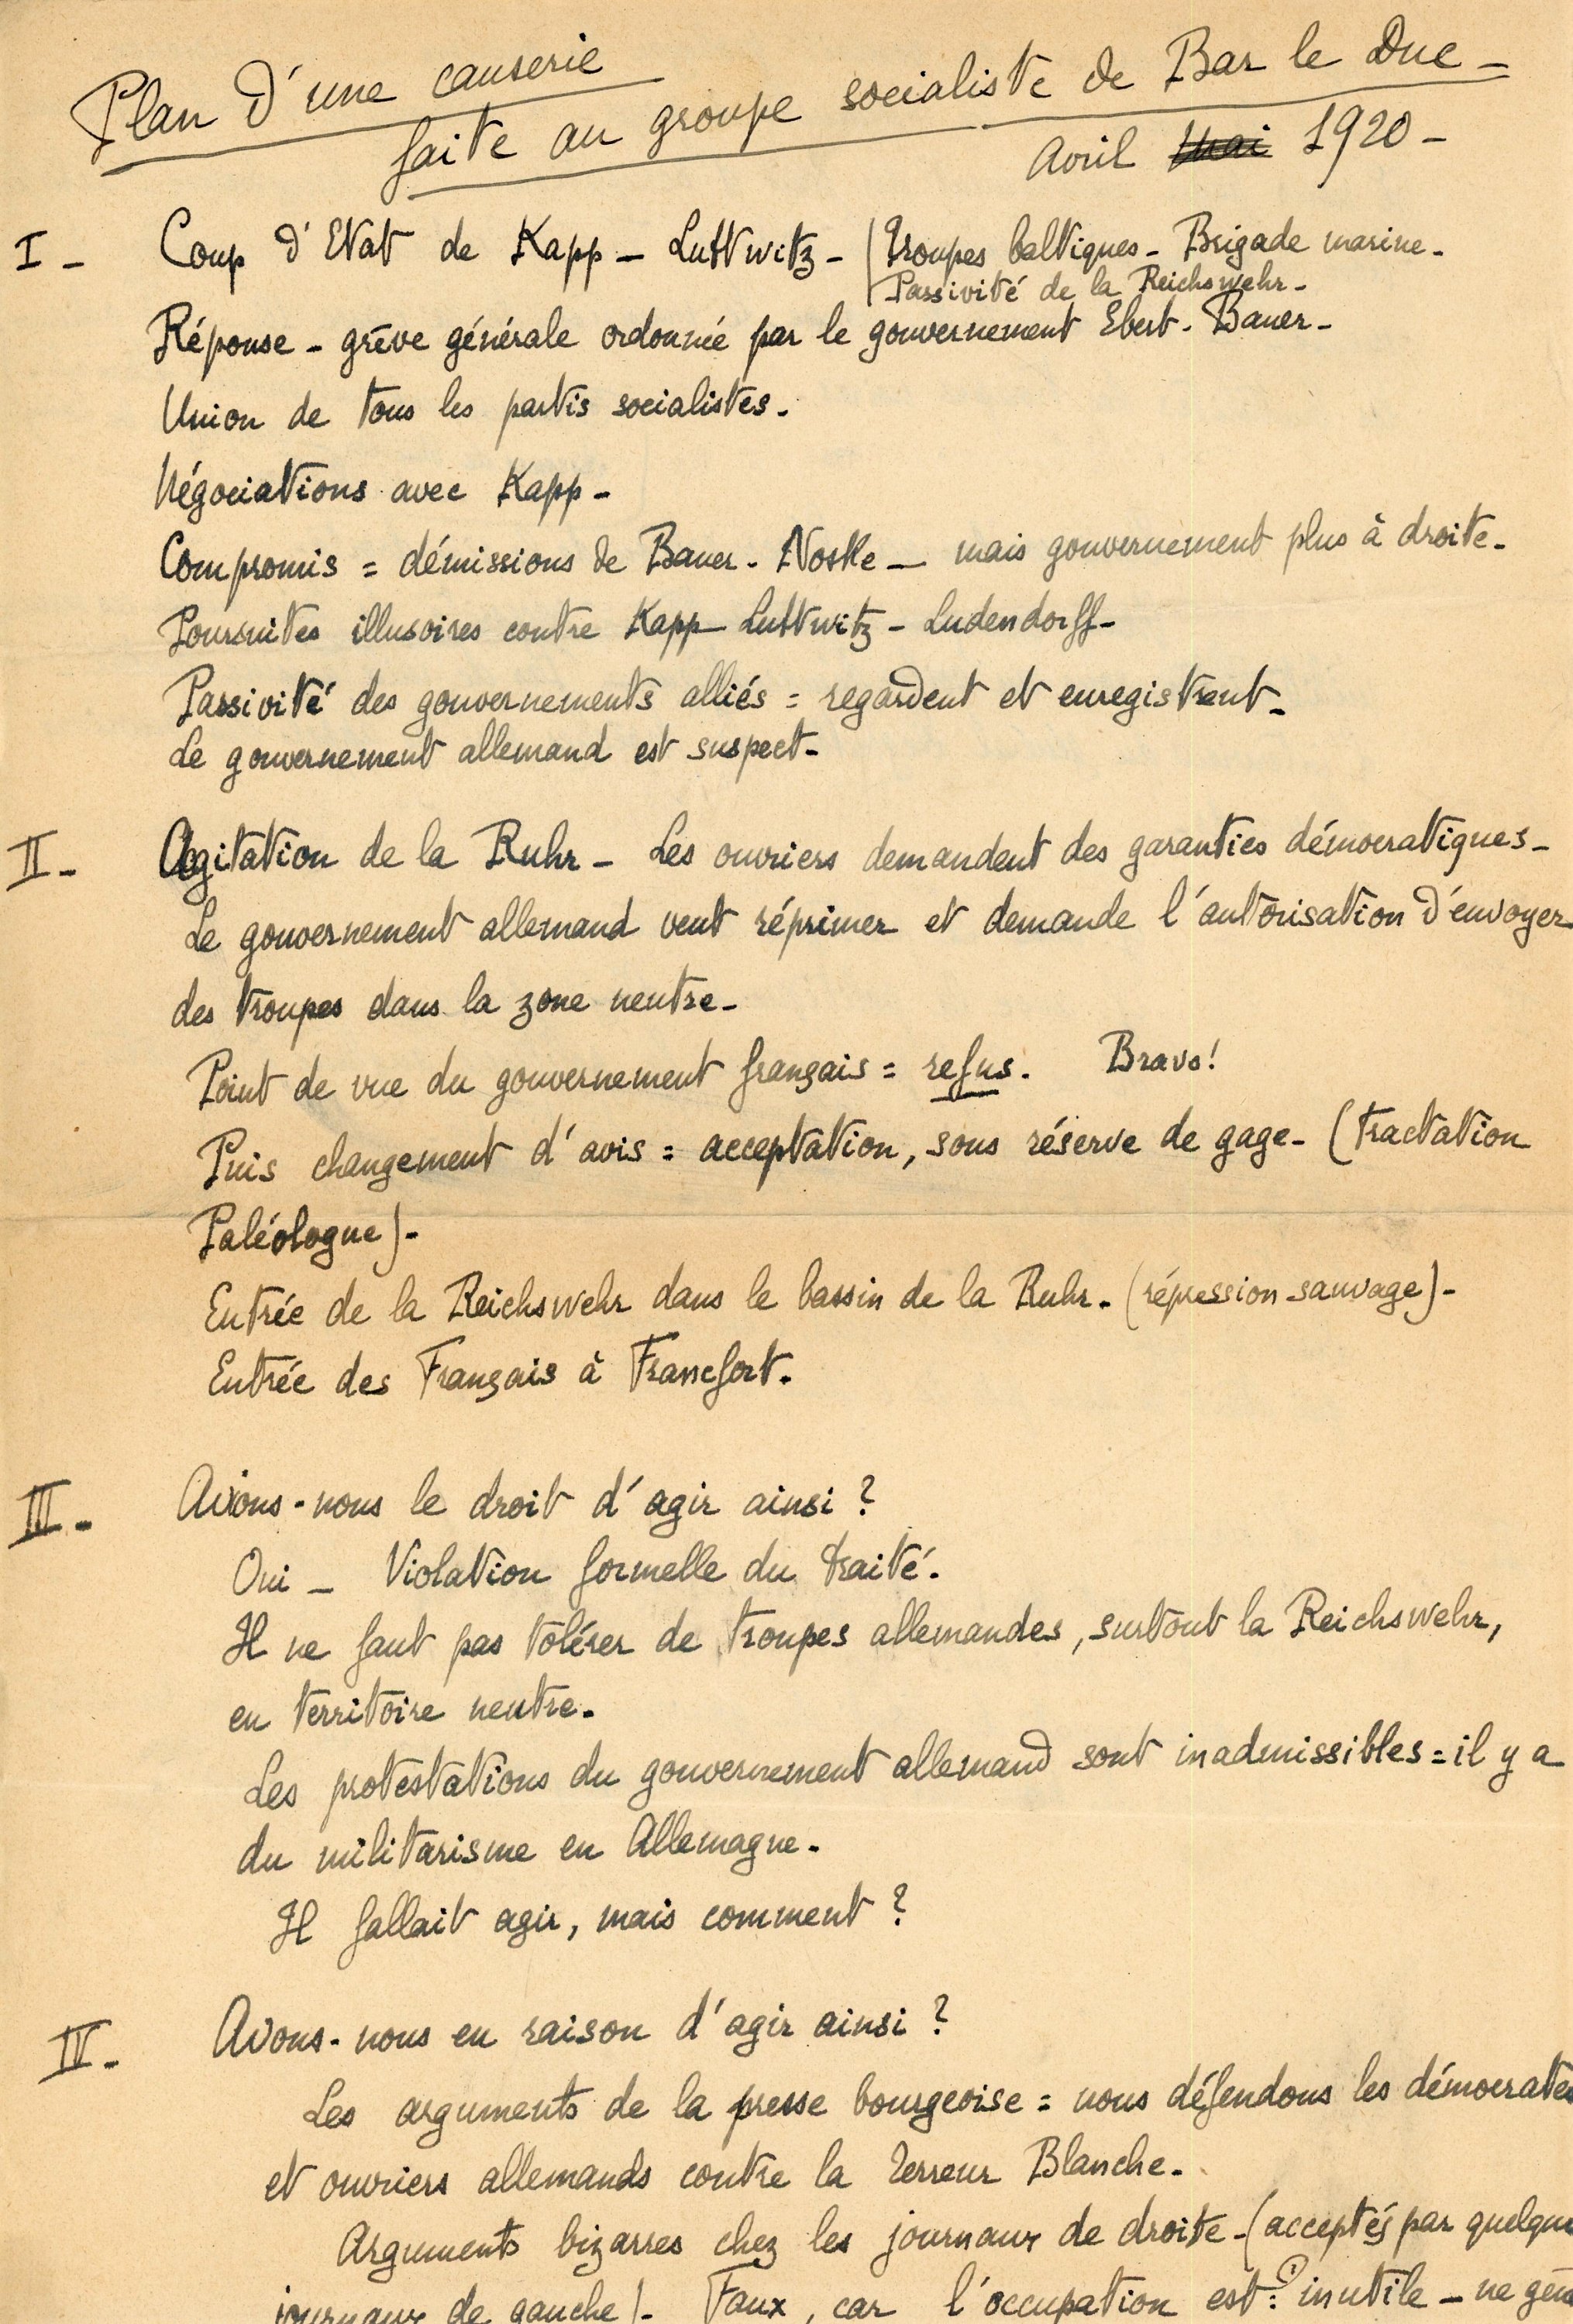 Plan d'une causerie
faite au groupe socialiste de Bar le Duc -
Avril Mai 1920 -
I - Coup d'Etat de Kapp - Luttwitz - (Troupes baltiques - Brigade marine -
Passivité de la Reichswehr -
Réponse - grève générale ordonnée par le gouvernement Ebert - Bauer -
Union de tous les partis socialistes.
Négociations avec Kapp -
Compromis = démissions de Bauer - Noske - mais gouvernement plus à droite -
Poursuites illusoires contre Kapp - Luttwitz - Ludendorff -
Passivité des gouvernements alliés = regardent et enregistrent -
Le gouvernement allemand est suspect -
II - Agitation de la Ruhr - Les ouvriers demandent des garanties démocratiques -
Le gouvernement allemand veut réprimer et demande l'autorisation d'envoyer
des troupes dans la zone neutre -
Point de vue du gouvernement français = refus. Bravo!
Puis changement d'avis = acceptation, sous réserve de gage - (tractation
Paléologue) -
Entrée de la Reichswehr dans le bassin de la Ruhr. (répression sauvage) -
Entrée des Français à Francfort.
III - Avions-nous le droit d'agir ainsi ?
Oui - Violation formelle du traité.
Il ne faut pas tolérer de troupes allemandes, surtout la Reichswehr,
en territoire neutre.
Les protestations du gouvernement allemand sont inadmissibles = il y a
du militarisme en Allemagne.
Il fallait agir, mais comment ?
IV - Avons-nous eu raison d'agir ainsi ?
Les arguments de la presse bourgeoise = nous défendons les démocrates
et ouvriers allemands contre la Terreur Blanche.
Arguments bizarres chez les journaux de droite - (acceptés par quelques
journaux de gauche) - Faux, car l'occupation est : 1) inutile - ne